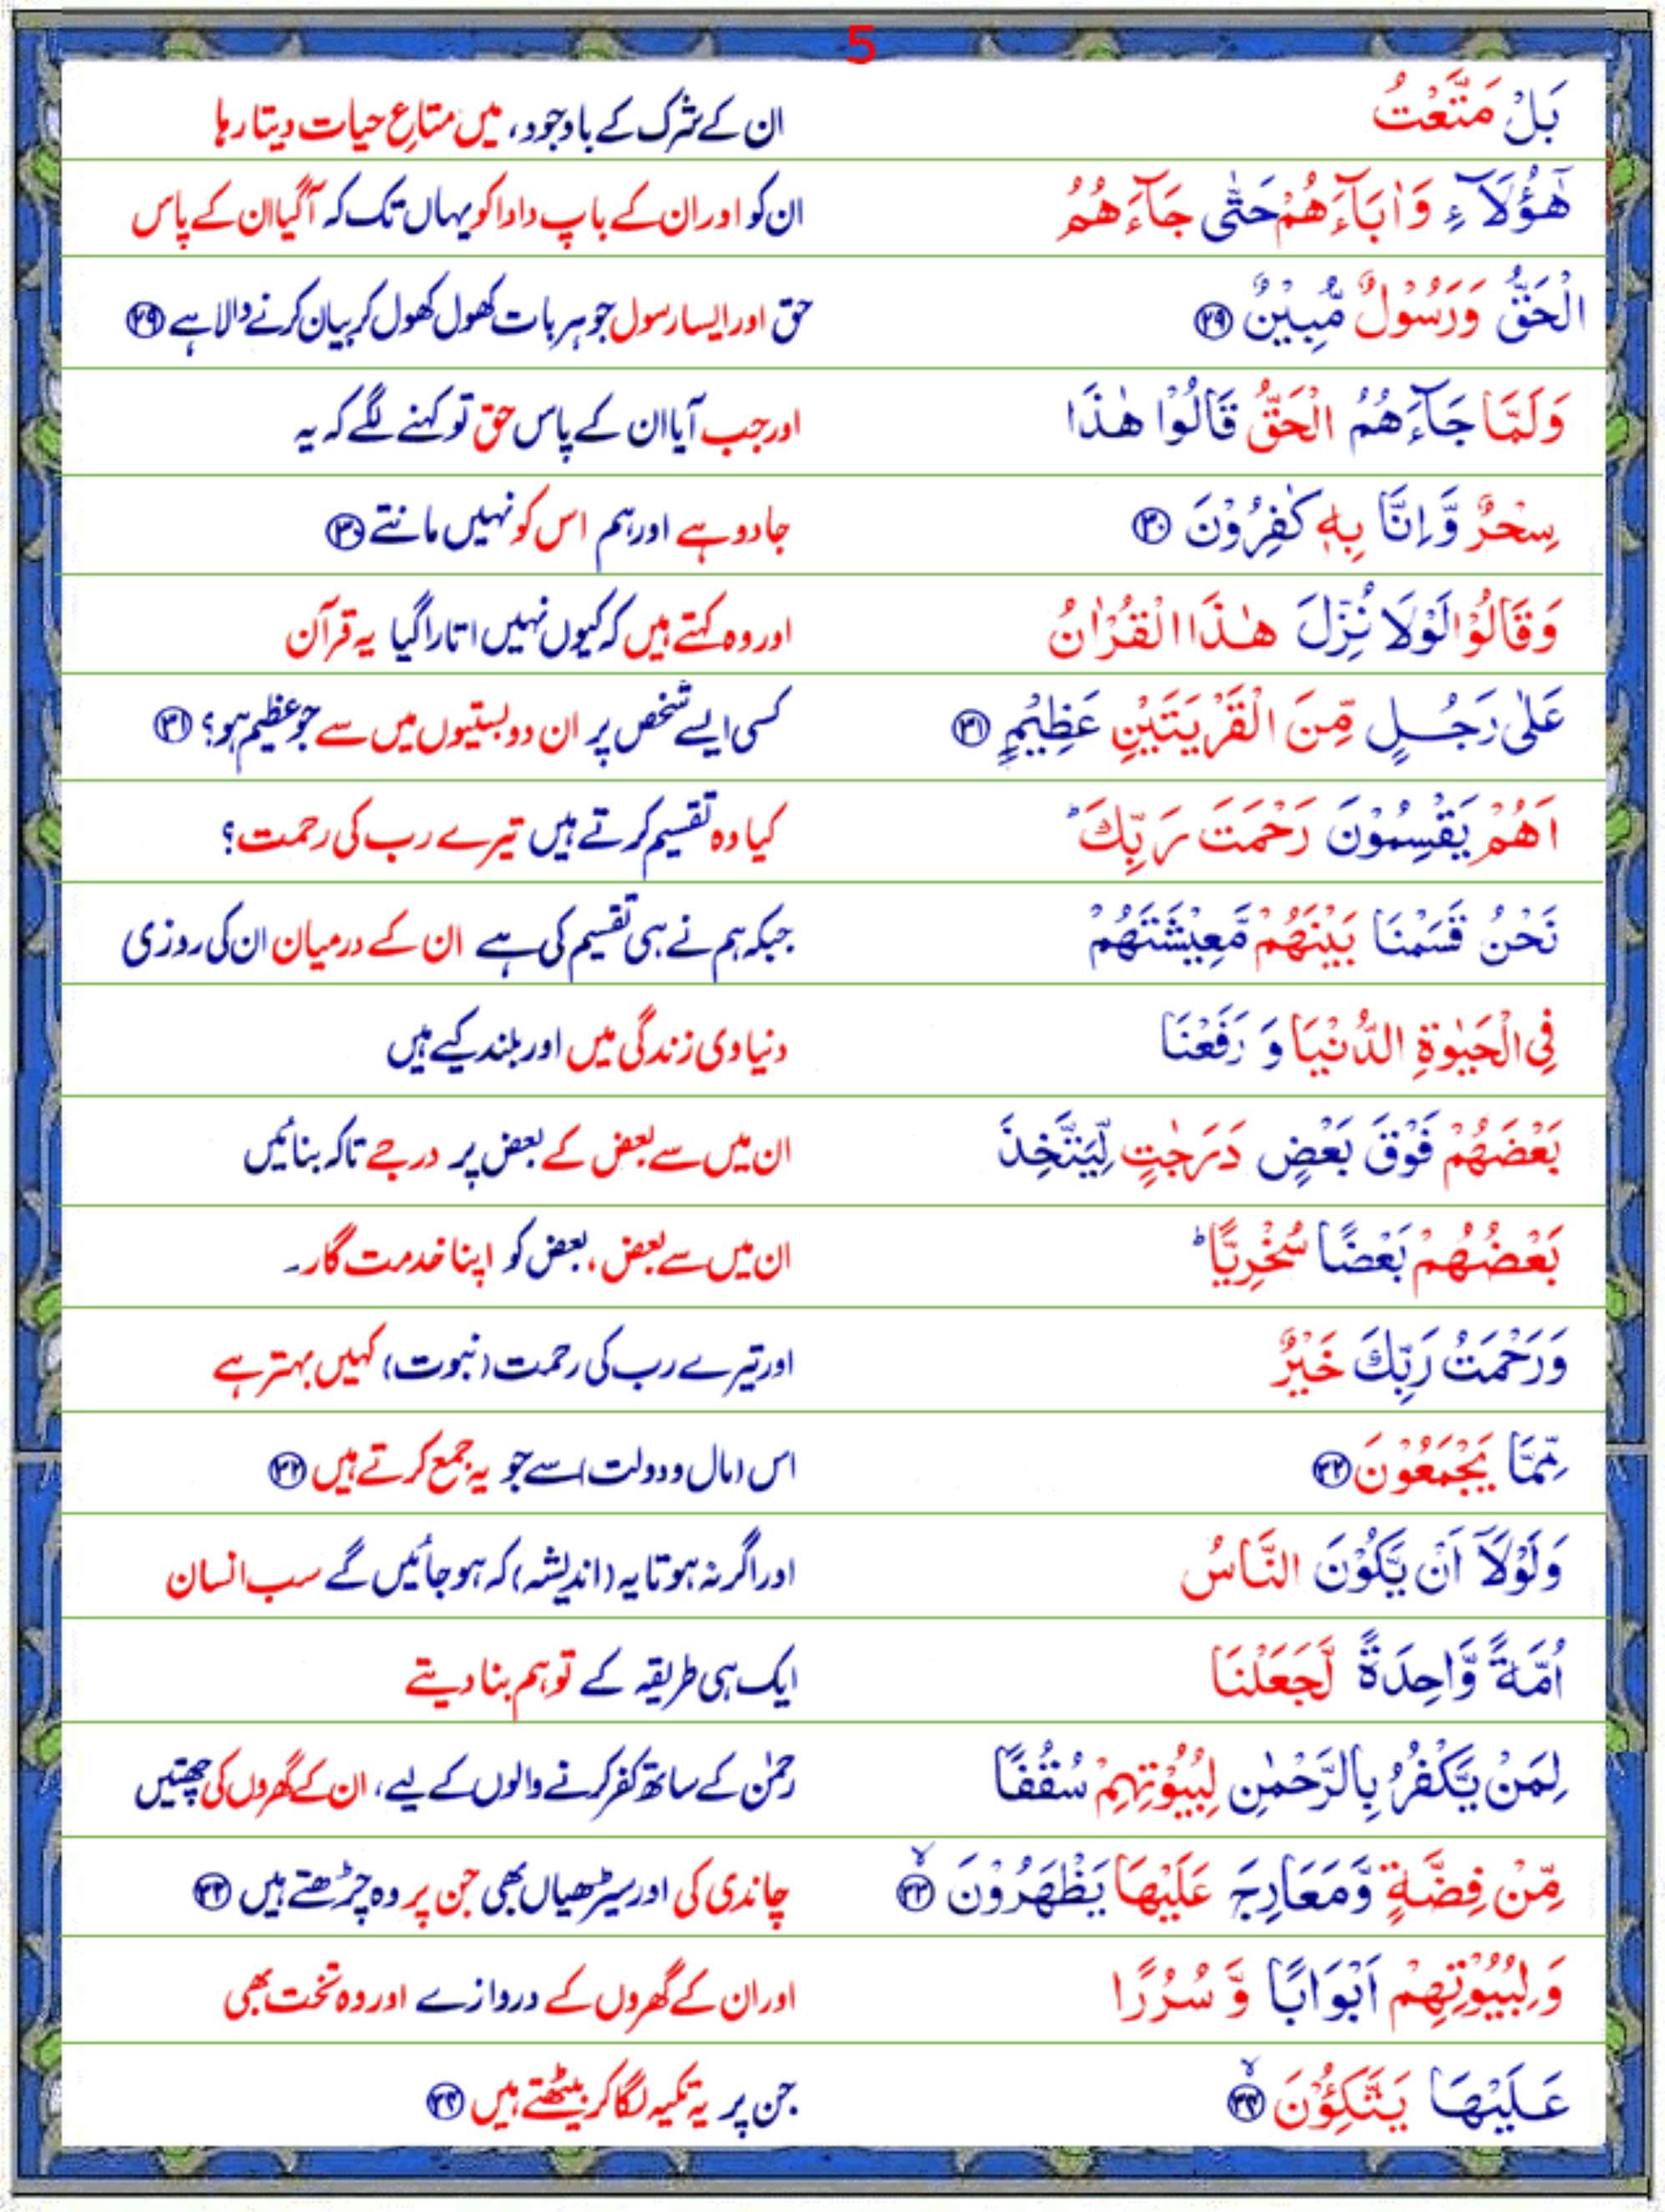 5
بَلْ مَتَّعْتُ ان کے شرک کے باوجود، میں متاعِ حیات دیتا رہا
هٰٓؤُلَآءِ وَاٰبَآءَهُمْ حَتّٰى جَآءَهُمُ ان کو اور ان کے باپ دادا کو یہاں تک کہ آگیا ان کے پاس
الْحَقُّ وَرَسُوْلٌ مُّبِيْنٌ ۲۹ حق اور ایسا رسول جو ہر بات کھول کھول کر بیان کرنے والا ہے ۲۹
وَلَمَّا جَآءَهُمُ الْحَقُّ قَالُوْا هٰذَا اور جب آیا ان کے پاس حق تو کہنے لگے کہ یہ
سِحْرٌ وَّاِنَّا بِهٖ كٰفِرُوْنَ ۳۰ جادو ہے اور ہم اس کو نہیں مانتے ۳۰
وَقَالُوْا لَوْلَا نُزِّلَ هٰذَا الْقُرْاٰنُ اور وہ کہتے ہیں کہ کیوں نہیں اتارا گیا یہ قرآن
عَلٰى رَجُلٍ مِّنَ الْقَرْيَتَيْنِ عَظِيْمٍ ۳۱ کسی ایسے شخص پر ان دو بستیوں میں سے جو عظیم ہو؟ ۳۱
اَهُمْ يَقْسِمُوْنَ رَحْمَتَ رَبِّكَ ؕ کیا وہ تقسیم کرتے ہیں تیرے رب کی رحمت؟
نَحْنُ قَسَمْنَا بَيْنَهُمْ مَّعِيْشَتَهُمْ جبکہ ہم نے ہی تقسیم کی ہے ان کے درمیان ان کی روزی
فِى الْحَيٰوةِ الدُّنْيَا وَ رَفَعْنَا دنیاوی زندگی میں اور بلند کیے ہیں
بَعْضَهُمْ فَوْقَ بَعْضٍ دَرَجٰتٍ لِّيَتَّخِذَ ان میں سے بعض کے بعض پر درجے تاکہ بنائیں
بَعْضُهُمْ بَعْضًا سُخْرِيًّا ؕ ان میں سے بعض، بعض کو اپنا خدمت گار۔
وَرَحْمَتُ رَبِّكَ خَيْرٌ اور تیرے رب کی رحمت (نبوت) کہیں بہتر ہے
مِّمَّا يَجْمَعُوْنَ ۳۲ اس (مال و دولت) سے جو یہ جمع کرتے ہیں ۳۲
وَلَوْلَاۤ اَنْ يَّكُوْنَ النَّاسُ اور اگر نہ ہوتا یہ (اندیشہ) کہ ہو جائیں گے سب انسان
اُمَّةً وَّاحِدَةً لَّجَعَلْنَا ایک ہی طریقہ کے تو ہم بنا دیتے
لِمَنْ يَّكْفُرُ بِالرَّحْمٰنِ لِبُيُوْتِهِمْ سُقُفًا رحمٰن کے ساتھ کفر کرنے والوں کے لیے، ان کے گھروں کی چھتیں
مِّنْ فِضَّةٍ وَّمَعَارِجَ عَلَيْهَا يَظْهَرُوْنَ ۳۳ۙ چاندی کی اور سیڑھیاں بھی جن پر وہ چڑھتے ہیں ۳۳
وَلِبُيُوْتِهِمْ اَبْوَابًا وَّ سُرُرًا اور ان کے گھروں کے دروازے اور وہ تخت بھی
عَلَيْهَا يَتَّكِـُٔوْنَ ۳۴ۙ جن پر یہ تکیہ لگا کر بیٹھتے ہیں ۳۴